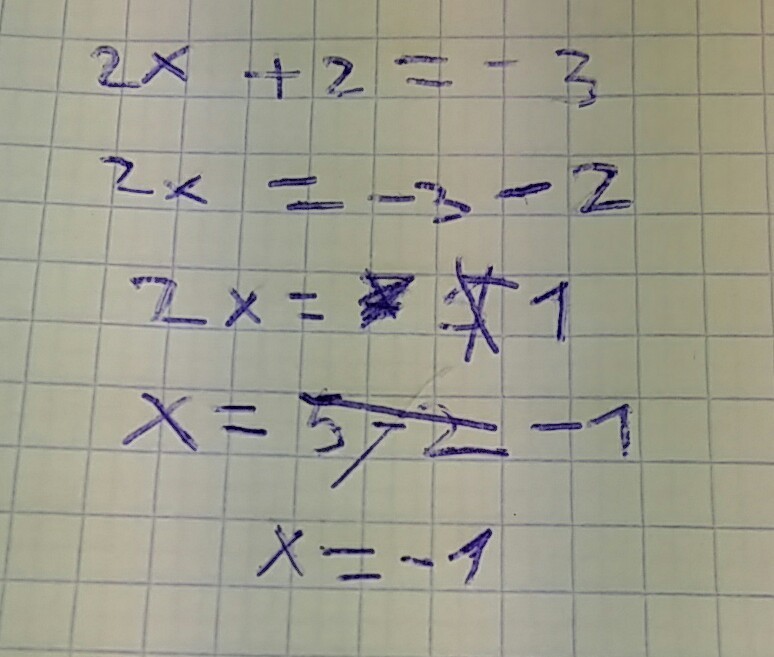 2x + 2 = - 3
2x = -3 - 2
2x = 1
x = 5 - 2 - 1
x = - 1